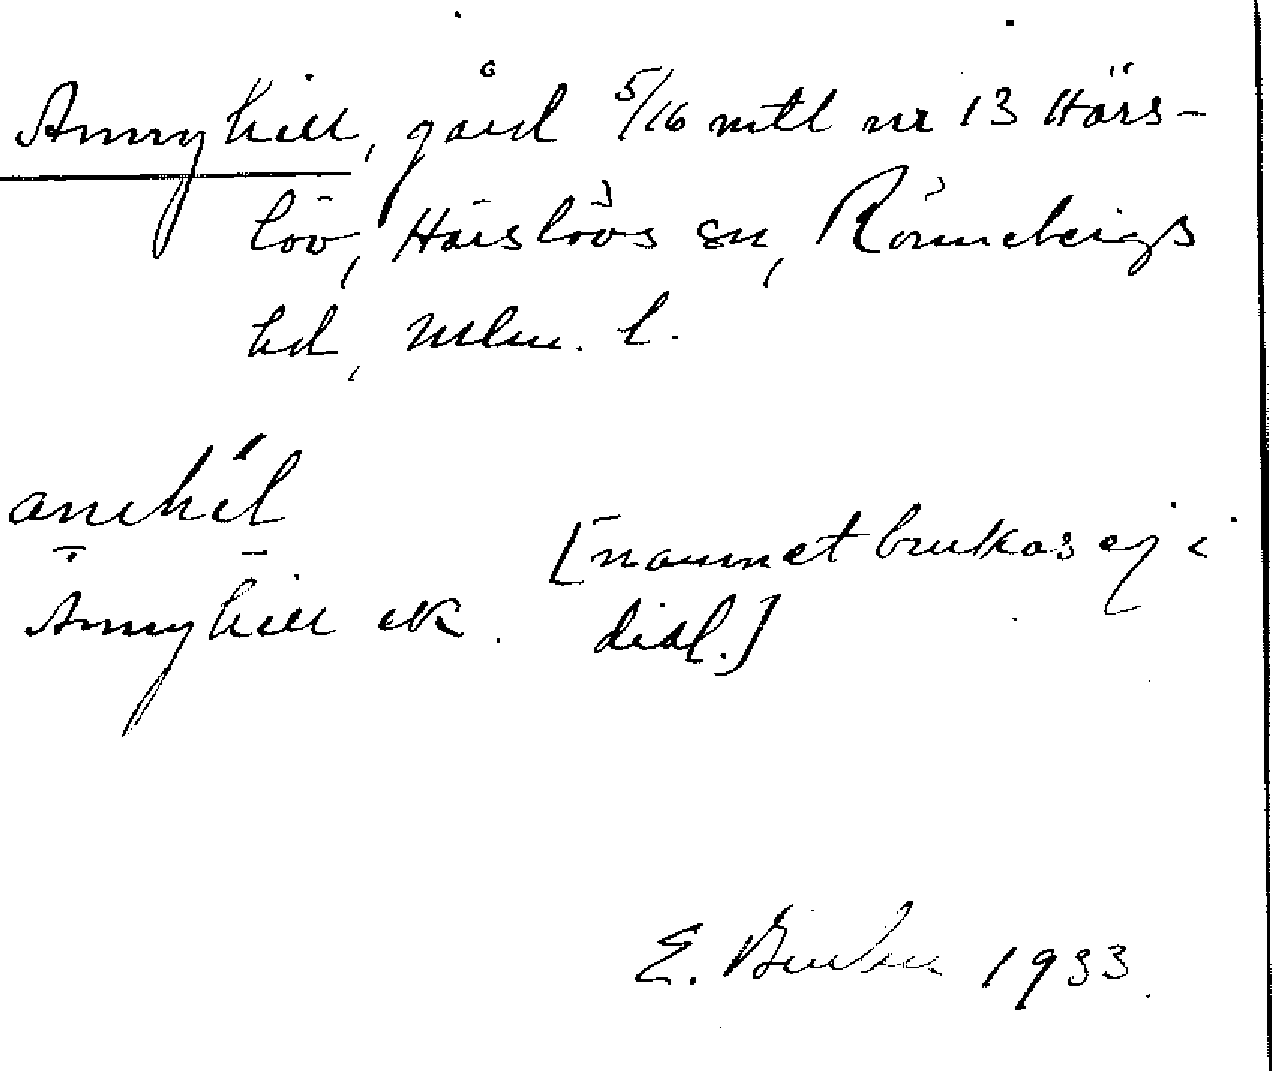 Annyhill, gård 5/16 mtl nr 13 Härs-
löv, Härslövs sn, Rönnebergs
hd, Mlm. l.
anehil
Annyhill ek. [namnet brukas ej i
dial.]
E. 1933.